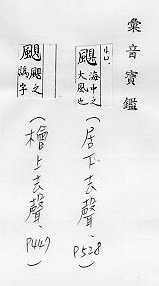 彙音寶鑑
颶 海中之大風也
(居下去聲、P528)
颶之譌字
(檜上去聲、P447)